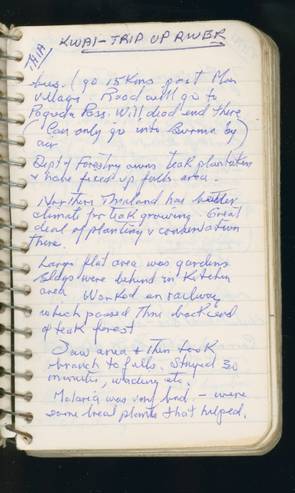 THAI
KWAI - TRIP UP RIVER
bus. (go 15 Kms past Mon
village. Road will go to
Pagoda Pass. Will dead end there
(Can only go into Burma by)
air
Dept of Forestry owns teak plantation
& have fixed up falls area.
Northern Thailand has better
climate for teak growing. Great
deal of planting & conservation
there.
Large flat area was gardens
Bldgs were behind in kitchen
area. Worked on railway
which passed thru back end
of teak forest
Saw area & then took
branch to falls. Stayed 30
minutes, wading etc.
Malaria was very bad - were
some local plants that helped.